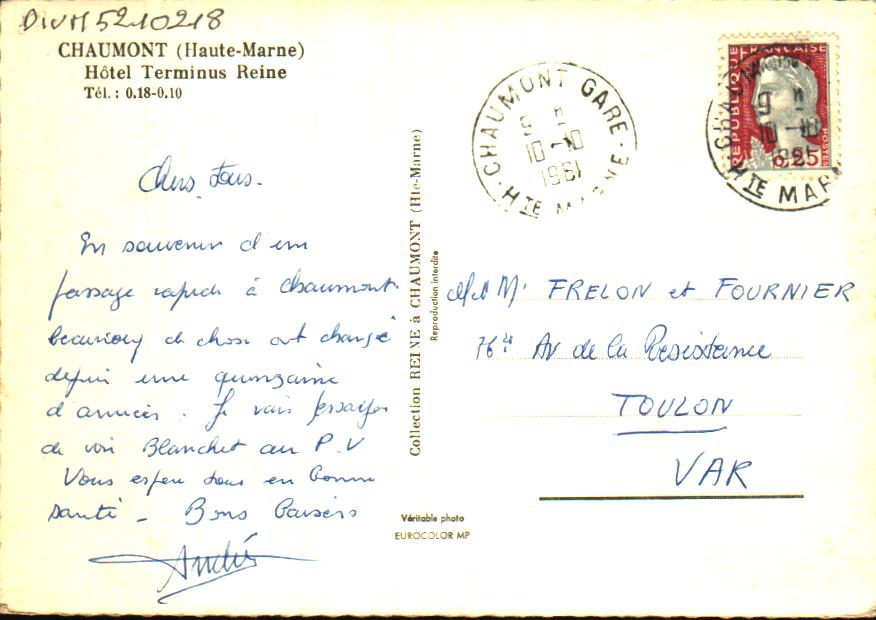 DIVM5210218
CHAUMONT (Haute-Marne)
Hôtel Terminus Reine
Tél. : 0.18-0.10
Chers tous.
En souvenir d'un
passage rapide à Chaumont.
beaucoup de chose ont changé
depuis une quinzaine
d'années. Je vais essayer
de voir Blanchet au P.V
Vous espère tous en bonne
santé - Bons Baisers
André
Collection REINE à CHAUMONT (Hte-Marne)
Reproduction interdite
Véritable photo
EUROCOLOR MP
CHAUMONT GARE
9 H
10-10
1961
HTE MARNE
REPUBLIQUE FRANÇAISE
POSTES
0,25
9 H
10-10
HTE MAR
FRELON et FOURNIER
Av de la Resistance
TOULON
VAR